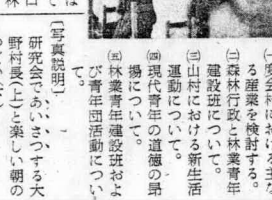 る産業を検討する。
㈡森林行政と林業青年
建設班について。
㈢山村における新生活
運動について。
㈣現代青年の道徳の昂
揚について。
㈤林業青年建設班およ
び青年団活動につい
て。
〔写真説明〕
研究会であいさつする大
野村長(上)と楽しい朝の